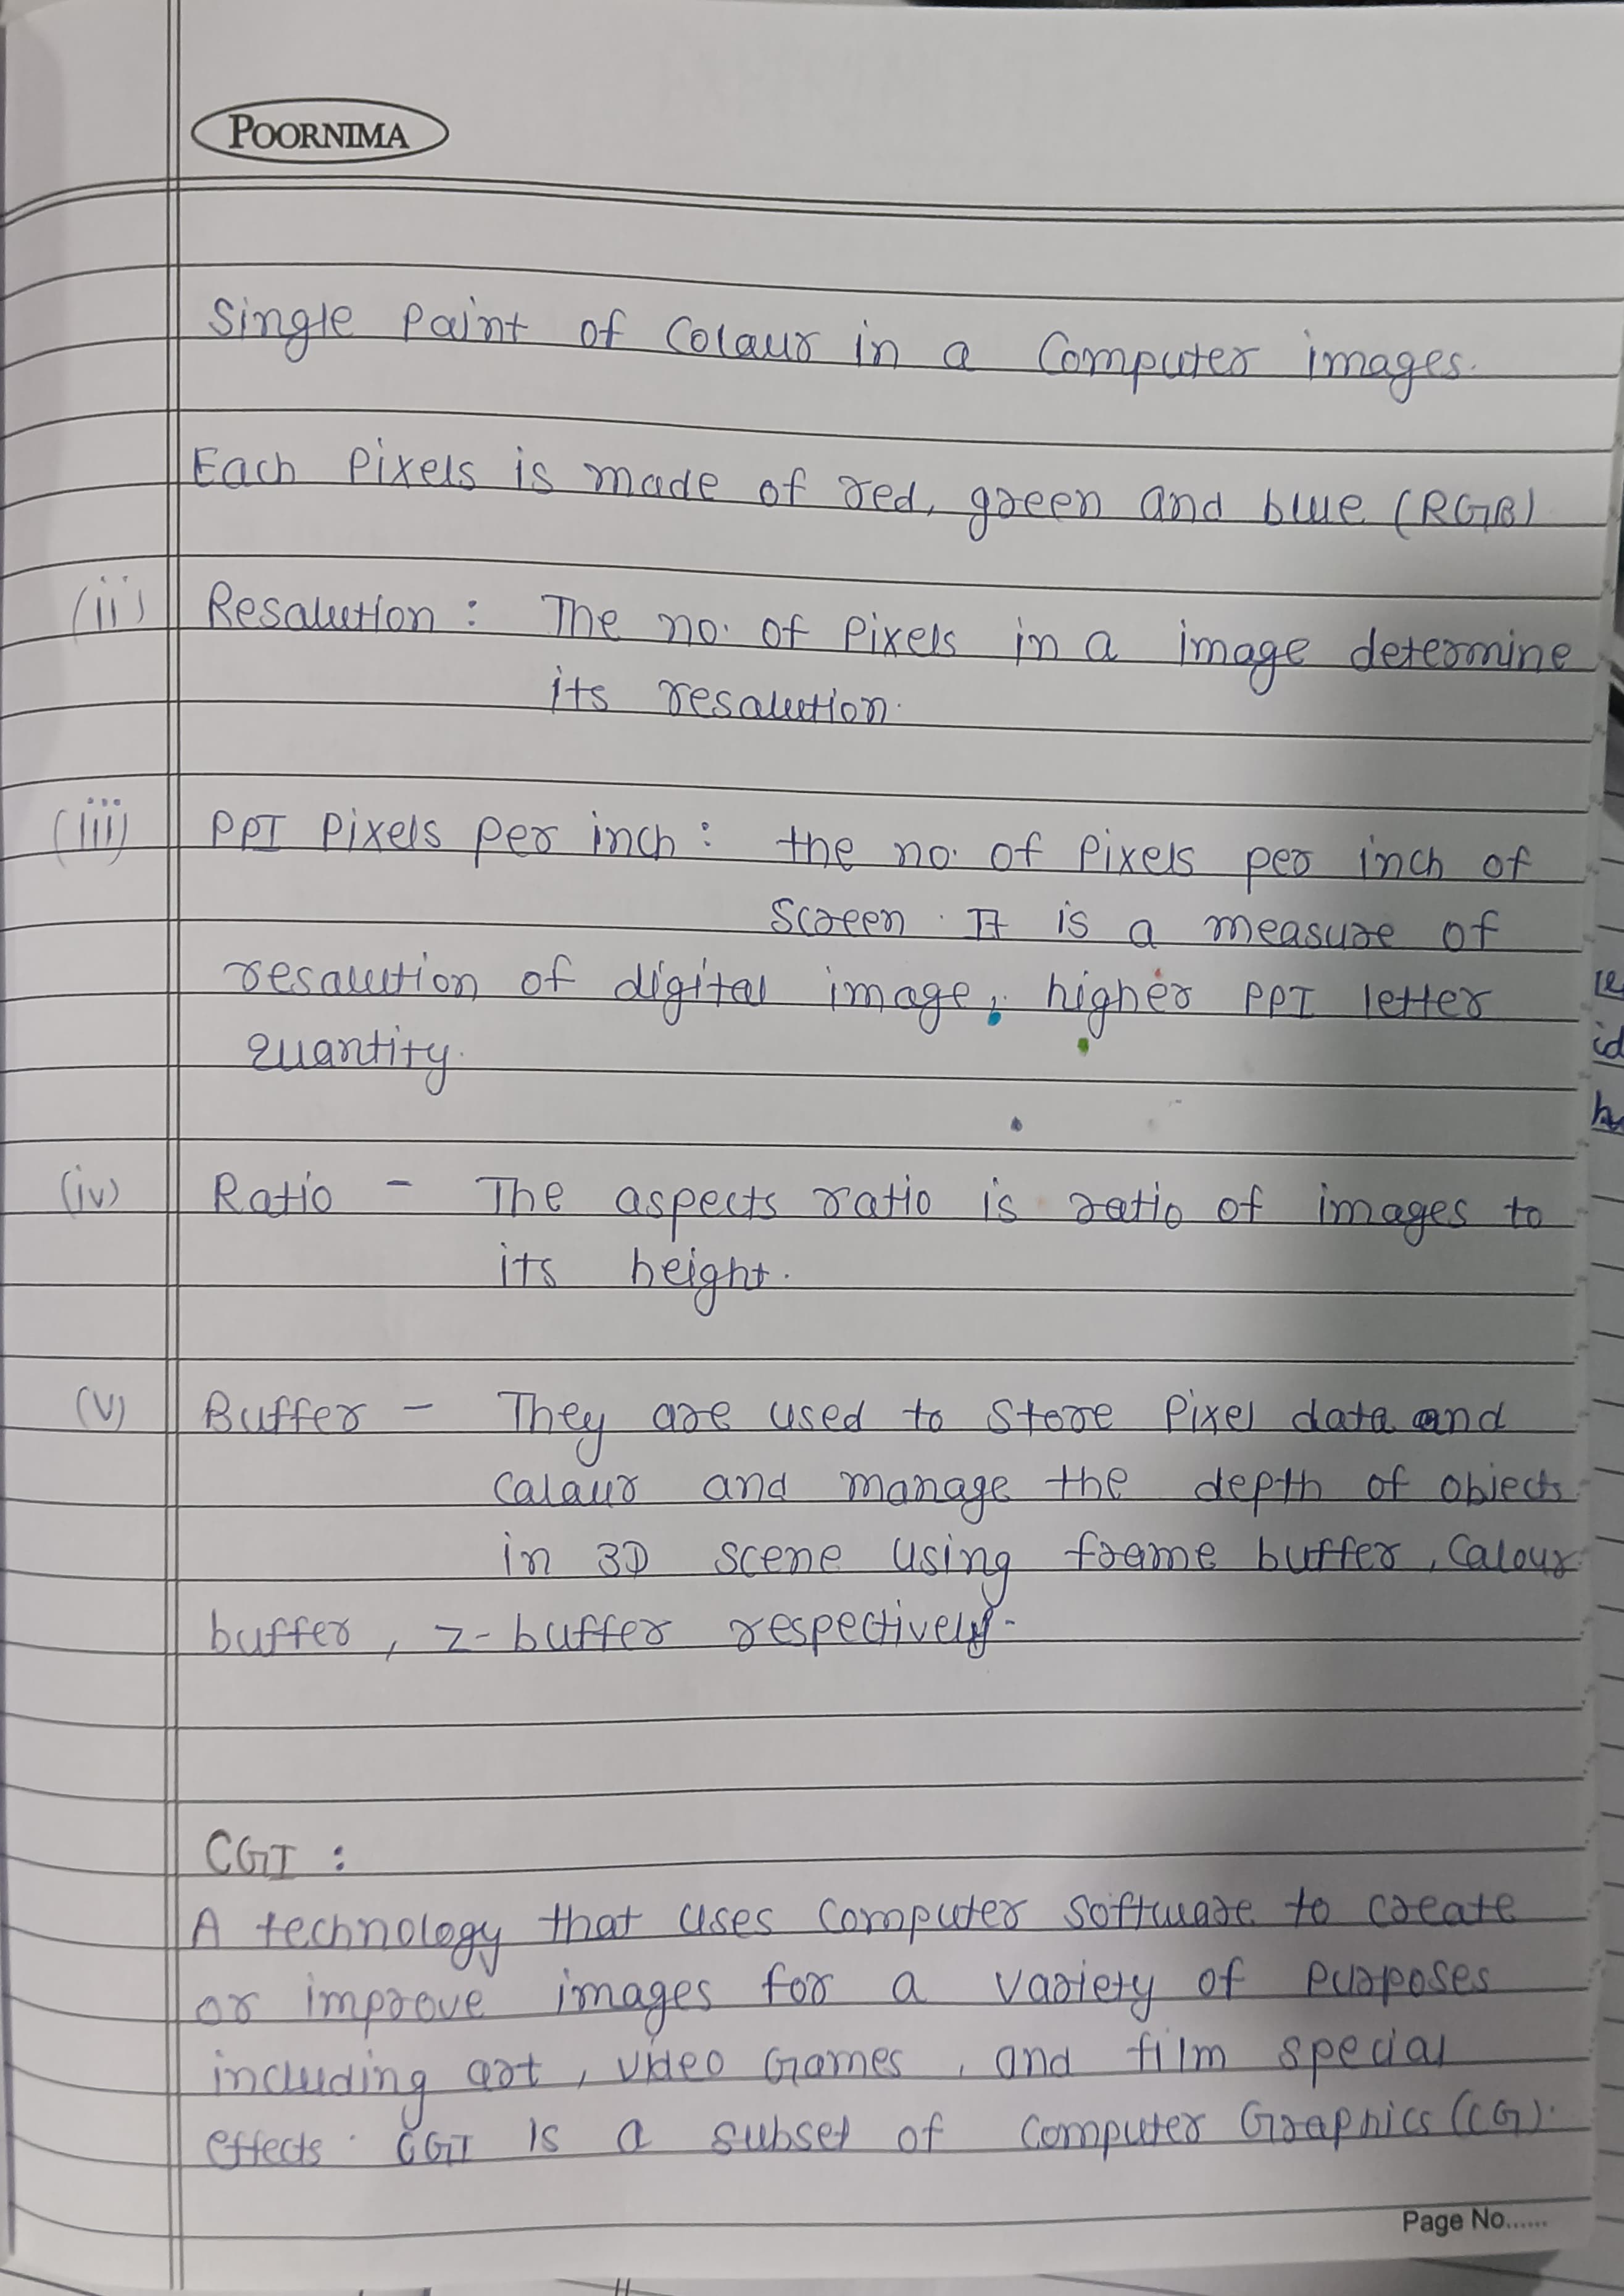 POORNIMA
Single Paint of Colaur in a Computer images.
Each Pixels is made of red, green and blue (RGB)
(ii) Resalution : The no. of Pixels in a image determine
its resalution.
(iii) PPI Pixels per inch : the no. of Pixels per inch of
Screen. It is a measure of
resalution of digital image, higher PPI letter
quantity.
(iv) Ratio - The aspects ratio is ratio of images to
its height.
(v) Buffer - They are used to store Pixel data and
Calaur and manage the depth of objects
in 3D scene using frame buffer, Calour
buffer, z-buffer respectively.
CGI :
A technology that uses Computer software to create
or improve images for a variety of purposes
including art, video Games, and film special
effects. CGI is a subset of Computer Graphics (CG).
Page No......